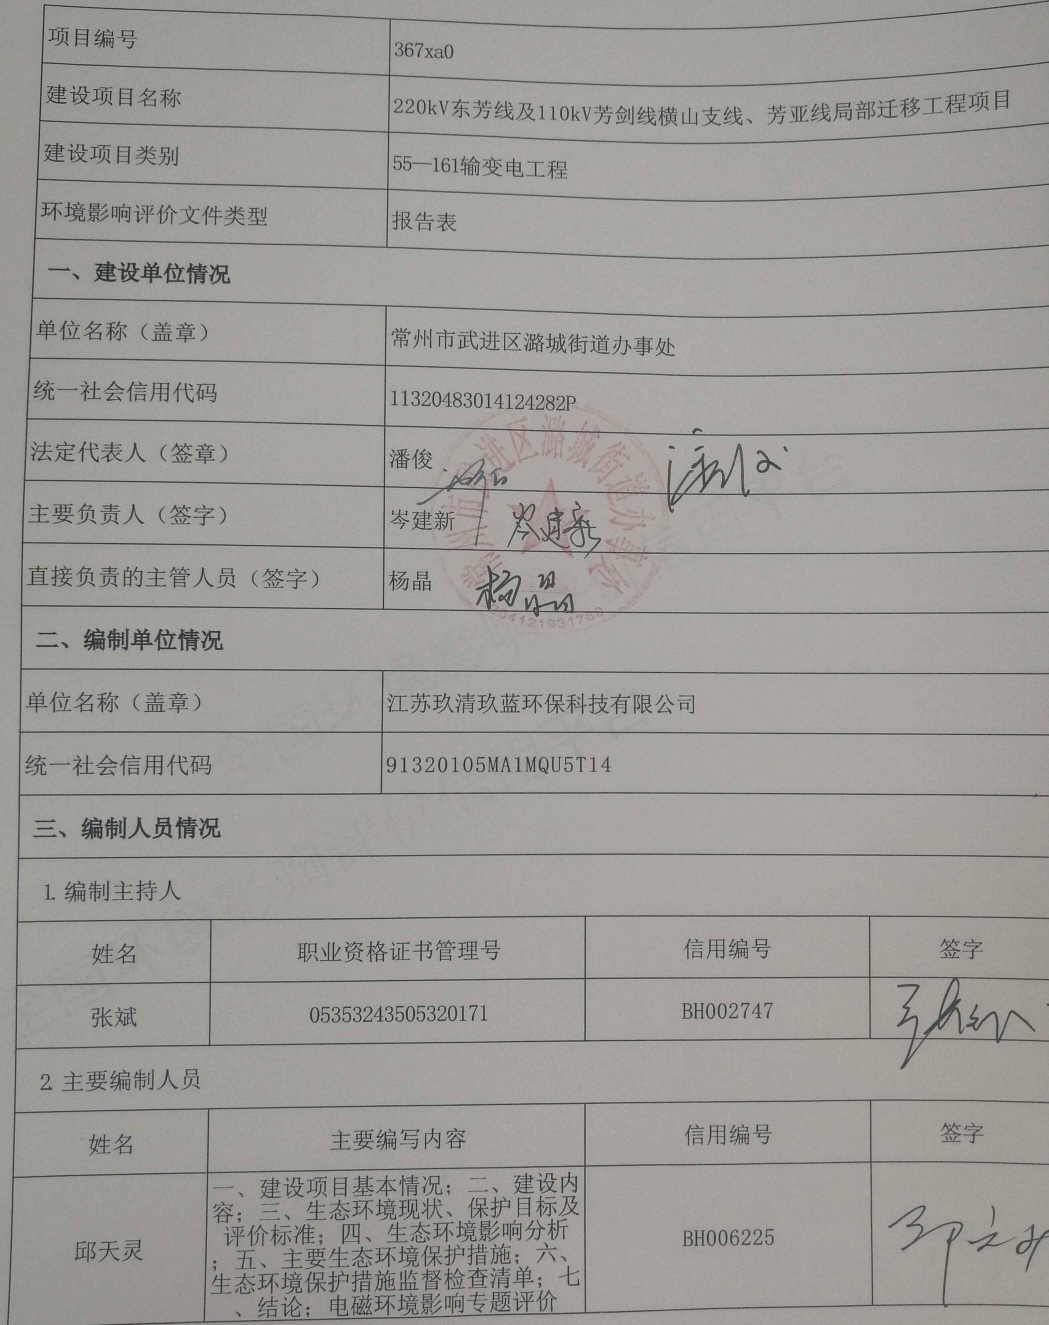 项目编号 367xa0
建设项目名称 220kV东芳线及110kV芳剑线横山支线、芳亚线局部迁移工程项目
建设项目类别 55—161输变电工程
环境影响评价文件类型 报告表
一、建设单位情况
单位名称（盖章） 常州市武进区潞城街道办事处
统一社会信用代码 11320483014124282P
法定代表人（签章） 潘俊
主要负责人（签字） 岑建新 岑建新
直接负责的主管人员（签字） 杨晶 杨晶
二、编制单位情况
单位名称（盖章） 江苏玖清玖蓝环保科技有限公司
统一社会信用代码 91320105MA1MQU5T14
三、编制人员情况
1. 编制主持人
姓名 职业资格证书管理号 信用编号 签字
张斌 05353243505320171 BH002747
2. 主要编制人员
姓名 主要编写内容 信用编号 签字
邱天灵 BH006225
一、建设项目基本情况；二、建设内
容；三、生态环境现状、保护目标及
评价标准；四、生态环境影响分析
；五、主要生态环境保护措施；六、
生态环境保护措施监督检查清单；七
、结论；电磁环境影响专题评价